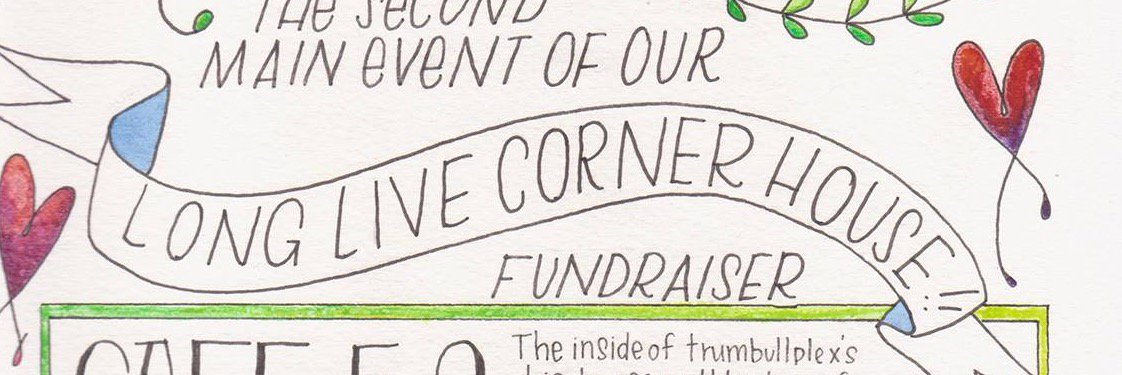 THE SECOND
MAIN EVENT OF OUR
LONG LIVE CORNER HOUSE!!
FUNDRAISER
The inside of trumbullplex's